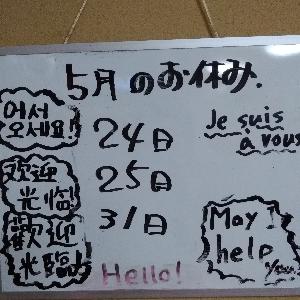 5月のお休み.
어서
오세요!
24日
Je suis
à vous
欢迎
光临!
25日
歡迎
光臨!
31日
May I
help
you!
Hello!